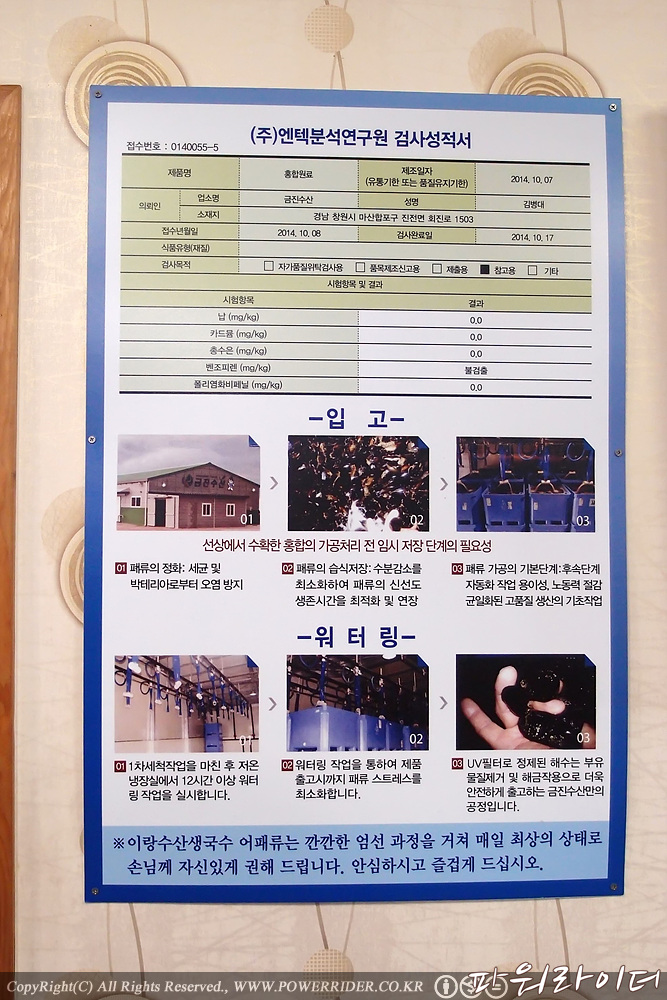 (주)엔텍분석연구원 검사성적서
접수번호 : 0140055-5
제품명 홍합원료 제조일자 (유통기한 또는 품질유지기한) 2014. 10. 07
의뢰인 업소명 금진수산 성명 김병대
소재지 경남 창원시 마산합포구 진전면 회진로 1503
접수년월일 2014. 10. 08 검사완료일 2014. 10. 17
식품유형(재질)
검사목적 □ 자가품질위탁검사용 □ 품목제조신고용 □ 제출용 ■ 참고용 □ 기타
시험항목 및 결과
시험항목 결과
납 (mg/kg) 0.0
카드뮴 (mg/kg) 0.0
총수은 (mg/kg) 0.0
벤조피렌 (mg/kg) 불검출
폴리염화비페닐 (mg/kg) 0.0
-입 고-
금진수산
01 02 03
선상에서 수확한 홍합의 가공처리 전 임시 저장 단계의 필요성
01 패류의 정화: 세균 및
박테리아로부터 오염 방지
02 패류의 습식저장: 수분감소를
최소화하여 패류의 신선도
생존시간을 최적화 및 연장
03 패류 가공의 기본단계:후속단계
자동화 작업 용이성, 노동력 절감
균일화된 고품질 생산의 기초작업
-워 터 링-
01 02 03
01 1차세척작업을 마친 후 저온
냉장실에서 12시간 이상 워터
링 작업을 실시합니다.
02 워터링 작업을 통하여 제품
출고시까지 패류 스트레스를
최소화합니다.
03 UV필터로 정제된 해수는 부유
물질제거 및 해금작용으로 더욱
안전하게 출고하는 금진수산만의
공정입니다.
※이랑수산생국수 어패류는 깐깐한 엄선 과정을 거쳐 매일 최상의 상태로
손님께 자신있게 권해 드립니다. 안심하시고 즐겁게 드십시오.
CopyRight(C) All Rights Reserved., WWW.POWERRIDER.CO.KR
파워라이더